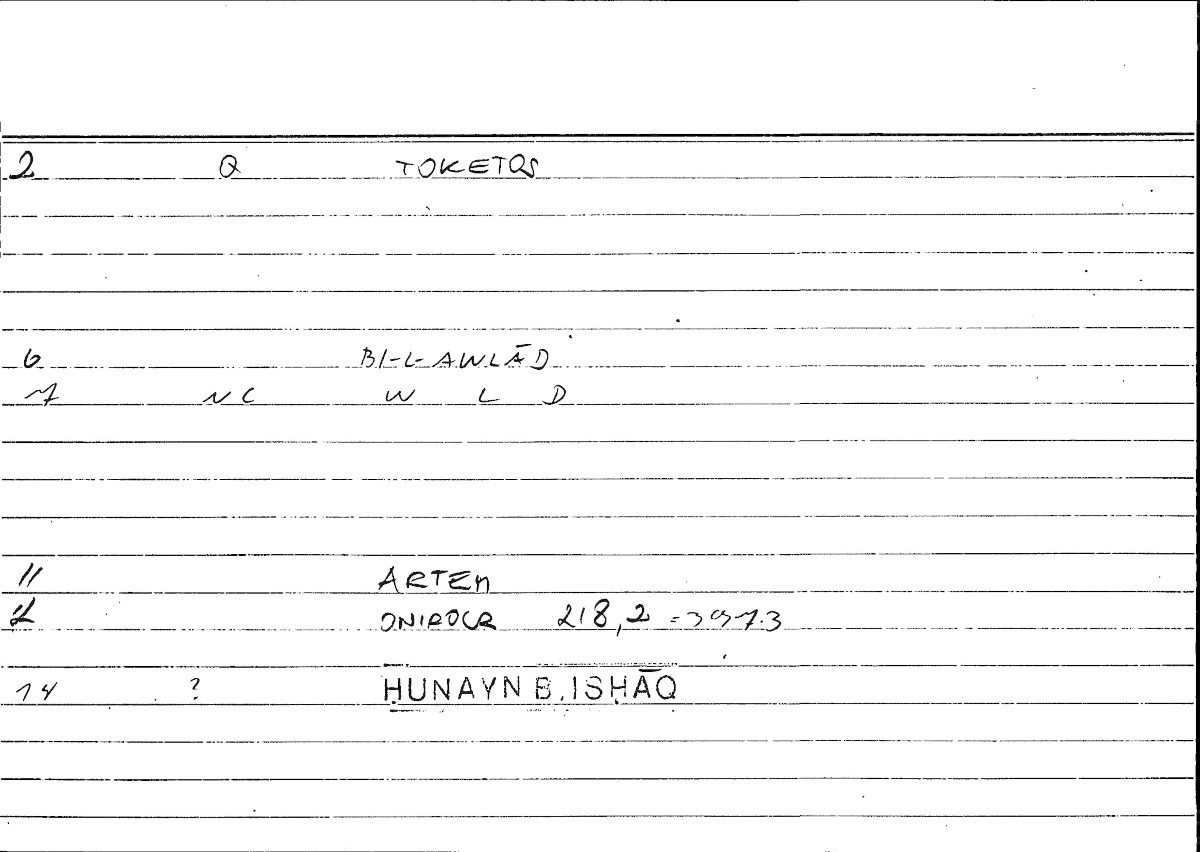 2 Q TOKETOS
6 BI-L-AWLĀD
7 NC W L D
11 ARTEM
12 ONIROCR 218,2 =397.3
14 ? ḤUNAYN B. ISḤĀQ